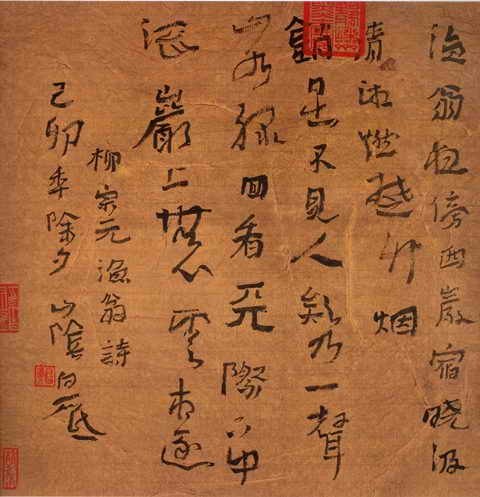 漁翁夜傍西巖宿曉汲
清湘燃楚竹烟
銷日出不見人欸乃一聲
山水綠回看天際下中
流巖上無心雲相逐
柳宗元漁翁詩
己卯年除夕山陰白砥